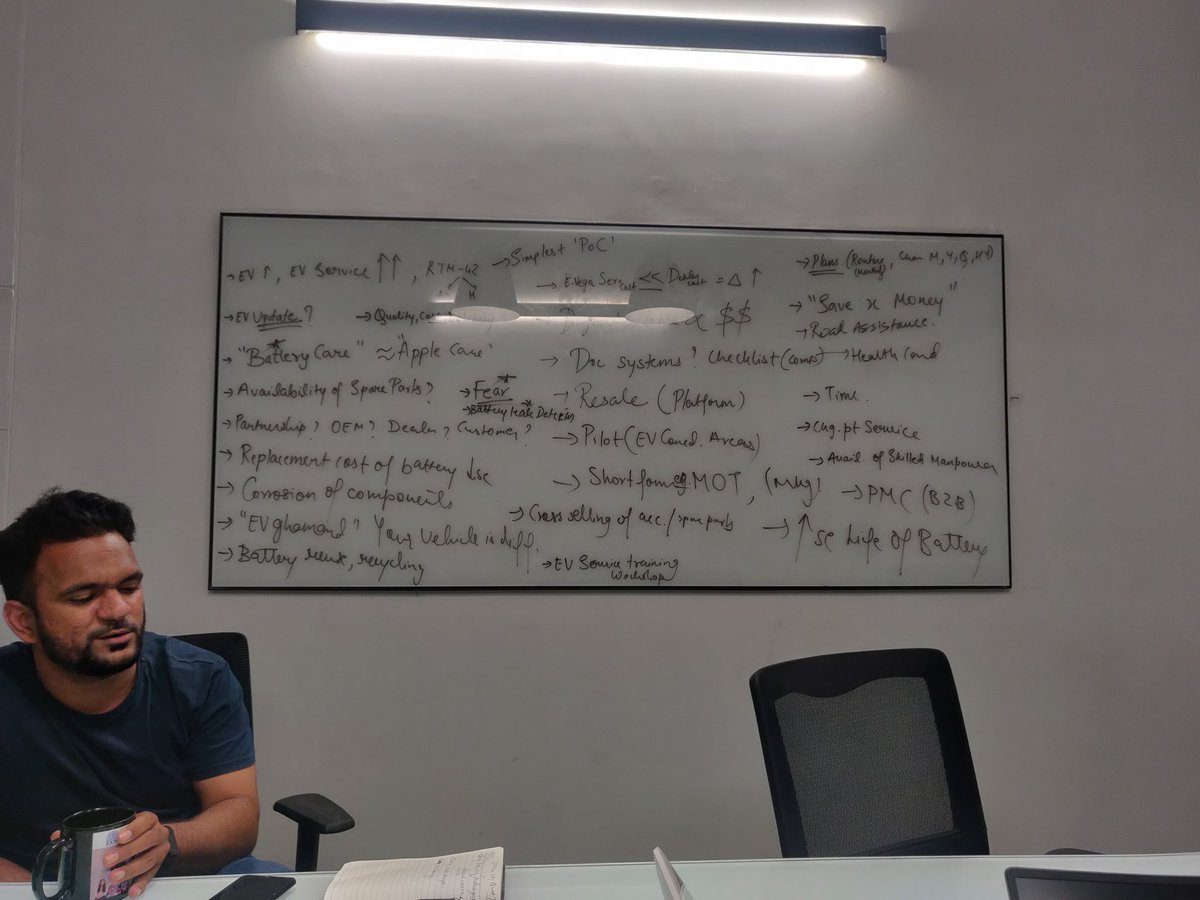 → EV ↑, EV Service ↑↑, RTM-42
→ Simplest 'PoC'
→ E.Vega Serv cost << Dealer cost = Δ ↑
→ Plans (Routine, M, Y, Q, HY)
(Monthly)
→ EV Update?
→ Quality,
$$
→ "Save x Money"
→ Road Assistance.
→ "Battery Care" ≈ "Apple Care"
→ Doc systems? Checklist (comp) → Health Card
→ Availability of Spare Parts?
→ Fear*
→ Battery leak
→ Resale (Platform)
→ Time.
→ Partnership? OEM? Dealer, Customer?
→ Pilot (EV Areas)
→ Chg. pt Service
→ Avail. of Skilled Manpower
→ Replacement cost of battery ↓se
→ Corrosion of components
→ Short form eg. MOT,
→ PMC (B2B)
→ "EV ghamand" Your Vehicle is diff.
→ Cross selling of acc./spare parts
→ ↑se Life of Battery
→ Battery reuse, recycling
→ EV Service training
Workshop